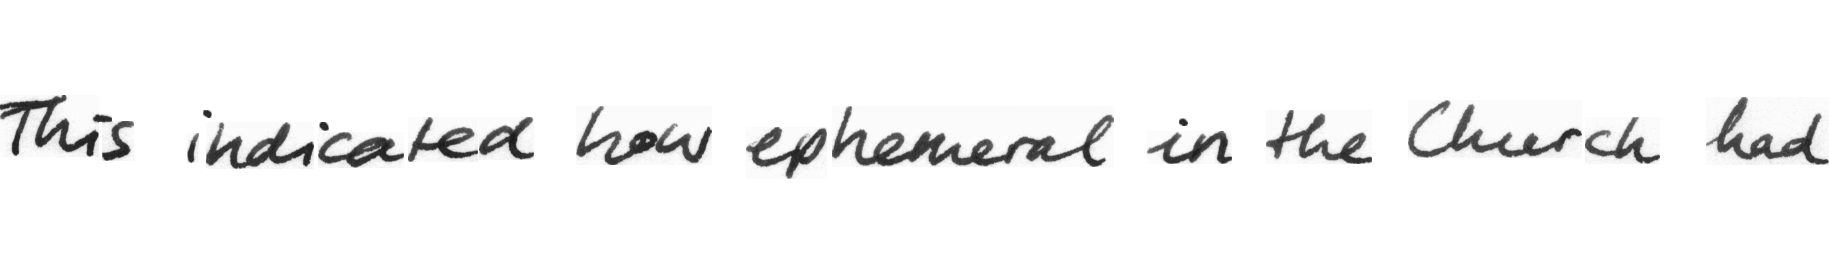 This indicated how ephemeral in the Church had